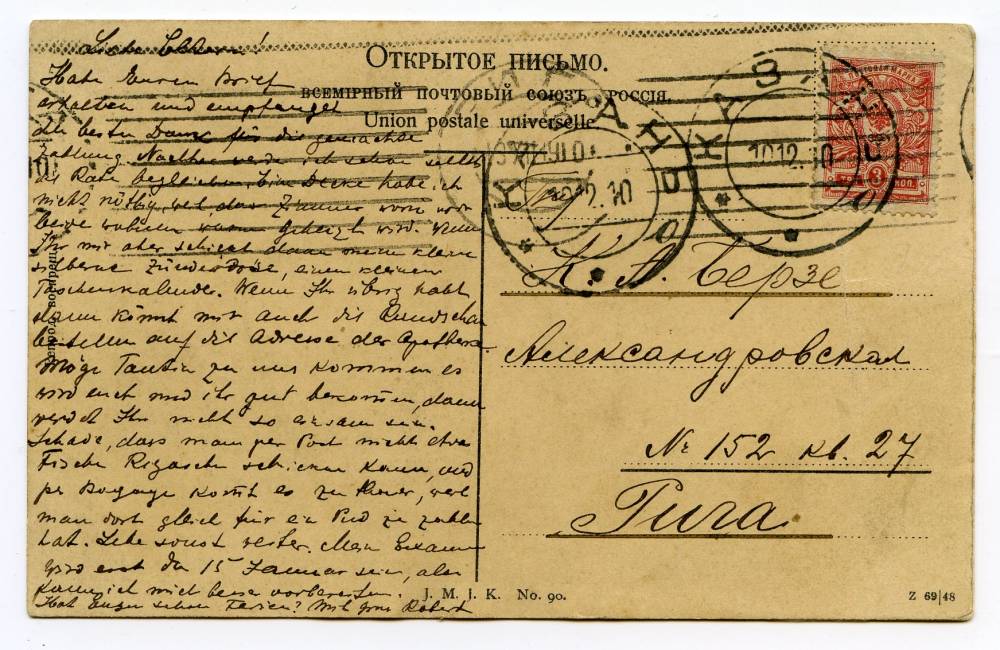 Liebe Eltern!
Habe Euren Brief
erhalten und empfanget
den besten Dank für die gemachte
Zahlung. Nachher werde ich schon selbst
die Rate begleichen. Eine Decke habe ich
nicht nötig, weil das Zimmer wo wir
beide wohnen warm geheizt wird. Wenn
Ihr mir aber schickt dann meine kleine
silberne Zünderdose, einen kleinen
Taschenkalender. Wenn Ihr übrig habt,
dann könnt mir auch die Rundschau
bestellen auf die Adresse der Apotheke.
Möge Tantin zu uns kommen es
wird euch und ihr gut bekommen, dann
werdet Ihr nicht so einsam sein.
Schade, dass man per Post nicht
Fische Rigasche schicken kann, und
per Bagage kommt es zu theuer, weil
man dort gleich für ein Pud zu zahlen
hat. Lebe sonst weiter. Mein Examen
wird erst den 15 Januar sein, aber
kann ich mich besser vorbereiten.
Hat schon Ferien? Mit Gruss Robert
ОТКРЫТОЕ ПИСЬМО.
ВСЕМІРНЫЙ ПОЧТОВЫЙ СОЮЗЪ РОССІЯ.
Union postale universelle.
КАЗАНЬ
10 12 10
КАЗАНЬ
10 12 10
3 КОП.
К. А. Берзе
Александровская
№ 152 кв. 27
Рига
J. M. J. K. No. 90.
Z 69|48